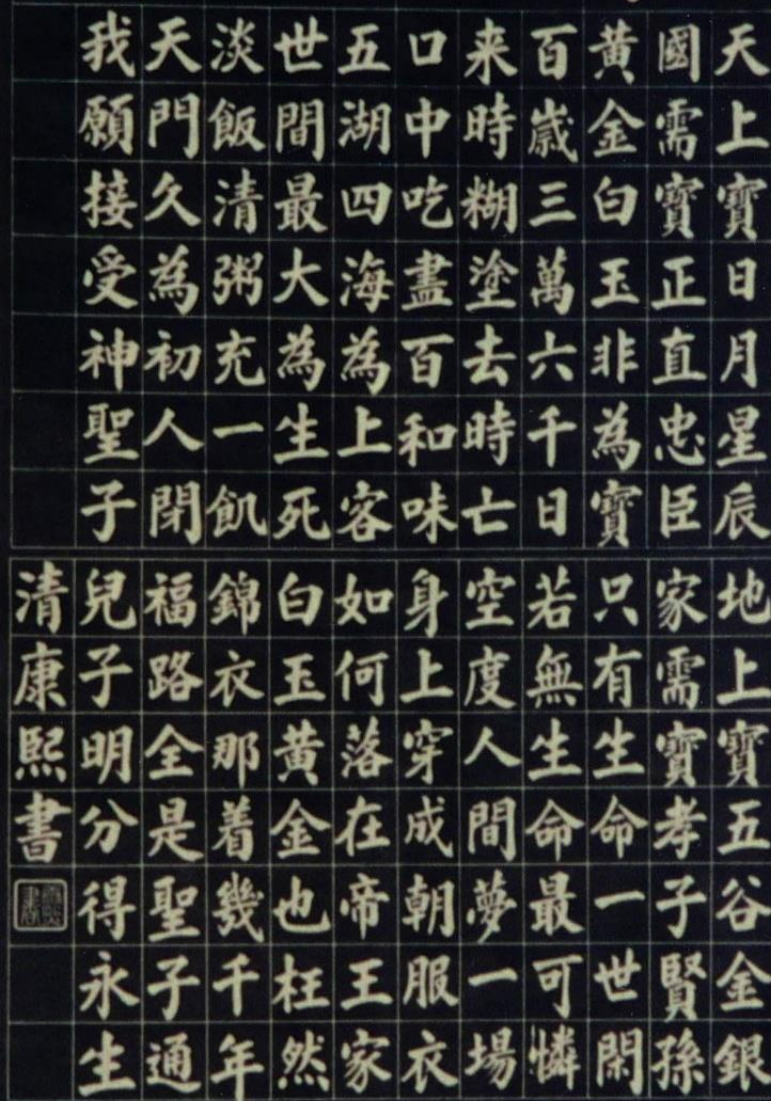 天上寶日月星辰地上寶五谷金銀
國需寶正直忠臣家需寶孝子賢孫
黃金白玉非為寶只有生命一世閑
百歲三萬六千日若無生命最可憐
来時糊塗去時亡空度人間夢一場
口中吃盡百和味身上穿成朝服衣
五湖四海為上客如何落在帝王家
世間最大為生死白玉黃金也枉然
淡飯清粥充一飢錦衣那着幾千年
天門久為初人閉福路全是聖子通
我願接受神聖子兒子明分得永生
清康熙書